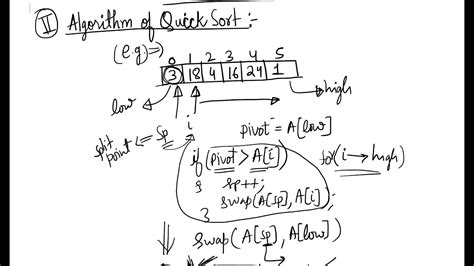 II Algorithm of Quick Sort :-
(e.g) =>
0 1 2 3 4 5
3 18 4 16 24 1
low high
i
split point <= sp pivot = A[low]
if (pivot > A[i]) for (i → high)
{ sp++;
swap(A[sp], A[i]);
}
swap(A[sp], A[low])